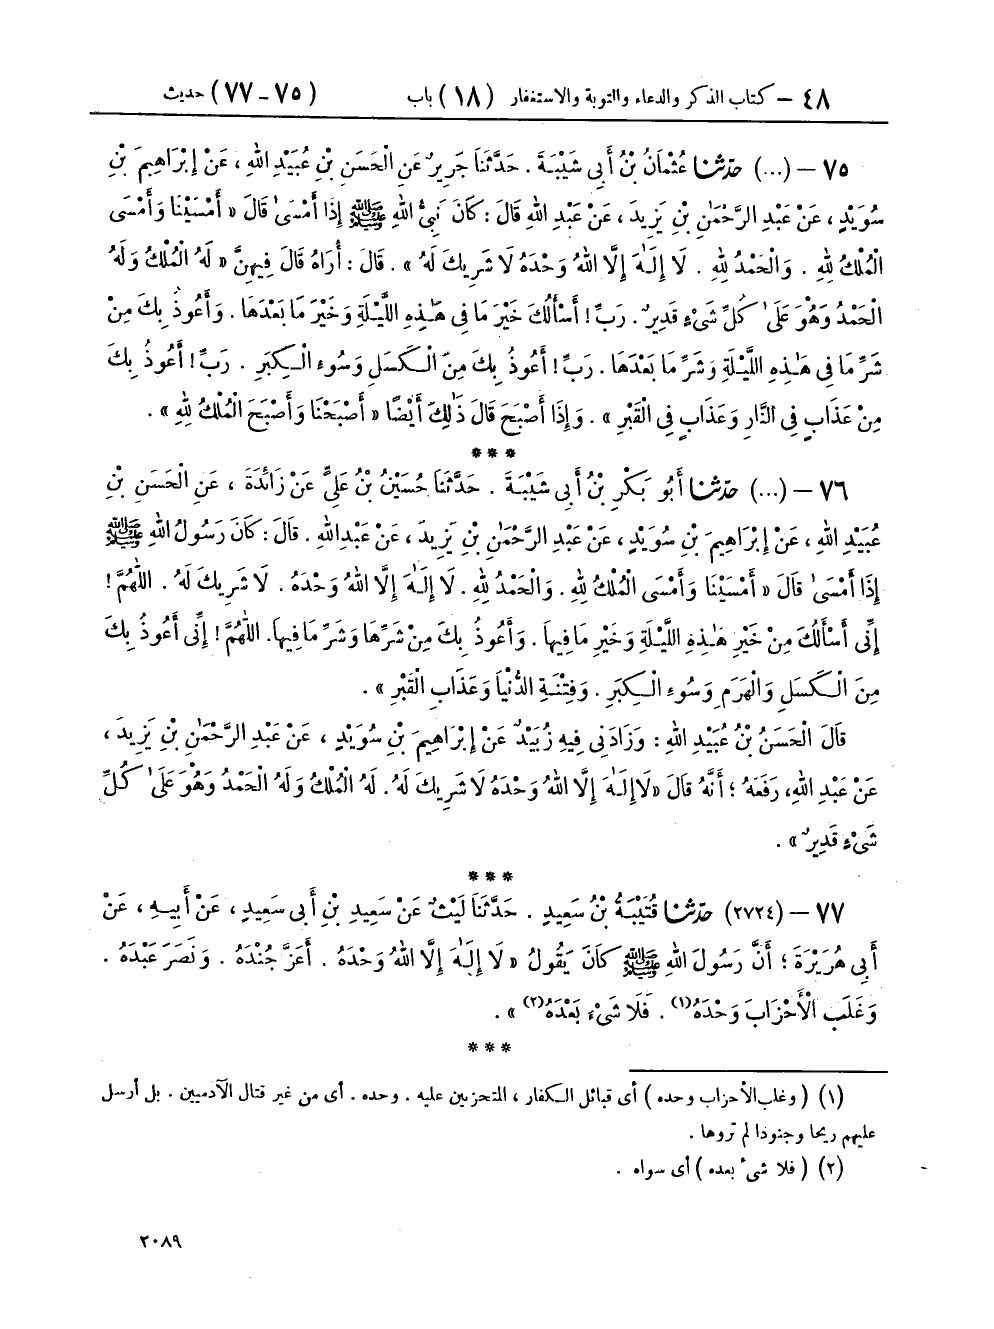 ٤٨ – كتاب الذكر والدعاء والتوبة والاستغفار (١٨) باب (٧٥ – ٧٧) حديث
٧٥ – (...) حدّثنا عُثْمَانُ بْنُ أَبِي شَيْبَةَ . حَدَّثَنَا جَرِيرٌ عَنِ الْحَسَنِ بْنِ عُبَيْدِ اللهِ ، عَنْ إِبْرَاهِيمَ بْنِ
سُوَيْدٍ ، عَنْ عَبْدِ الرَّحْمَٰنِ بْنِ يَزِيدَ ، عَنْ عَبْدِ اللهِ قَالَ : كَانَ نَبِيُّ اللهِ ﷺ إِذَا أَمْسَىٰ قَالَ « أَمْسَيْنَا وَأَمْسَى
الْمُلْكُ لِلهِ . وَالْحَمْدُ لِلهِ . لَا إِلَـٰهَ إِلَّا اللهُ وَحْدَهُ لَا شَرِيكَ لَهُ » . قَالَ : أُرَاهُ قَالَ فِيهِنَّ « لَهُ الْمُلْكُ وَلَهُ
الْحَمْدُ وَهُوَ عَلَىٰ كُلِّ شَيْءٍ قَدِيرٌ . رَبِّ ! أَسْأَلُكَ خَيْرَ مَا فِي هَـٰذِهِ اللَّيْلَةِ وَخَيْرَ مَا بَعْدَهَا . وَأَعُوذُ بِكَ مِنْ
شَرِّ مَا فِي هَـٰذِهِ اللَّيْلَةِ وَشَرِّ مَا بَعْدَهَا . رَبِّ ! أَعُوذُ بِكَ مِنَ الْكَسَلِ وَسُوءِ الْكِبَرِ . رَبِّ ! أَعُوذُ بِكَ
مِنْ عَذَابٍ فِي النَّارِ وَعَذَابٍ فِي الْقَبْرِ » . وَإِذَا أَصْبَحَ قَالَ ذَٰلِكَ أَيْضًا « أَصْبَحْنَا وَأَصْبَحَ الْمُلْكُ لِلهِ » .
***
٧٦ – (...) حدّثنا أَبُو بَكْرِ بْنُ أَبِي شَيْبَةَ . حَدَّثَنَا حُسَيْنُ بْنُ عَلِيٍّ عَنْ زَائِدَةَ ، عَنِ الْحَسَنِ بْنِ
عُبَيْدِ اللهِ ، عَنْ إِبْرَاهِيمَ بْنِ سُوَيْدٍ ، عَنْ عَبْدِ الرَّحْمَٰنِ بْنِ يَزِيدَ ، عَنْ عَبْدِ اللهِ . قَالَ : كَانَ رَسُولُ اللهِ ﷺ
إِذَا أَمْسَىٰ قَالَ « أَمْسَيْنَا وَأَمْسَى الْمُلْكُ لِلهِ . وَالْحَمْدُ لِلهِ . لَا إِلَـٰهَ إِلَّا اللهُ وَحْدَهُ . لَا شَرِيكَ لَهُ . اللّٰهُمَّ !
إِنِّي أَسْأَلُكَ مِنْ خَيْرِ هَـٰذِهِ اللَّيْلَةِ وَخَيْرِ مَا فِيهَا . وَأَعُوذُ بِكَ مِنْ شَرِّهَا وَشَرِّ مَا فِيهَا. اللّٰهُمَّ ! إِنِّي أَعُوذُ بِكَ
مِنَ الْكَسَلِ وَالْهَرَمِ وَسُوءِ الْكِبَرِ . وَفِتْنَةِ الدُّنْيَا وَعَذَابِ الْقَبْرِ » .
قَالَ الْحَسَنُ بْنُ عُبَيْدِ اللهِ : وَزَادَنِي فِيهِ زُبَيْدٌ عَنْ إِبْرَاهِيمَ بْنِ سُوَيْدٍ ، عَنْ عَبْدِ الرَّحْمَٰنِ بْنِ يَزِيدَ ،
عَنْ عَبْدِ اللهِ، رَفَعَهُ ؛ أَنَّهُ قَالَ « لَا إِلَـٰهَ إِلَّا اللهُ وَحْدَهُ لَا شَرِيكَ لَهُ. لَهُ الْمُلْكُ وَلَهُ الْحَمْدُ وَهُوَ عَلَىٰ كُلِّ
شَيْءٍ قَدِيرٌ » .
***
٧٧ – (٢٧٢٤) حدّثنا قُتَيْبَةُ بْنُ سَعِيدٍ . حَدَّثَنَا لَيْثٌ عَنْ سَعِيدِ بْنِ أَبِي سَعِيدٍ ، عَنْ أَبِيهِ ، عَنْ
أَبِي هُرَيْرَةَ ؛ أَنَّ رَسُولَ اللهِ ﷺ كَانَ يَقُولُ « لَا إِلَـٰهَ إِلَّا اللهُ وَحْدَهُ . أَعَزَّ جُنْدَهُ . وَنَصَرَ عَبْدَهُ .
وَغَلَبَ الْأَحْزَابَ وَحْدَهُ(١) . فَلَا شَيْءَ بَعْدَهُ(٢) » .
***
(١) ( وغلب الأحزاب وحده ) أى قبائل الكفار ، المتحزبين عليه . وحده . أى من غير قتال الآدميين . بل أرسل
عليهم ريحا وجنودا لم تروها .
(٢) ( فلا شىء بعده ) أى سواه .
٢٠٨٩